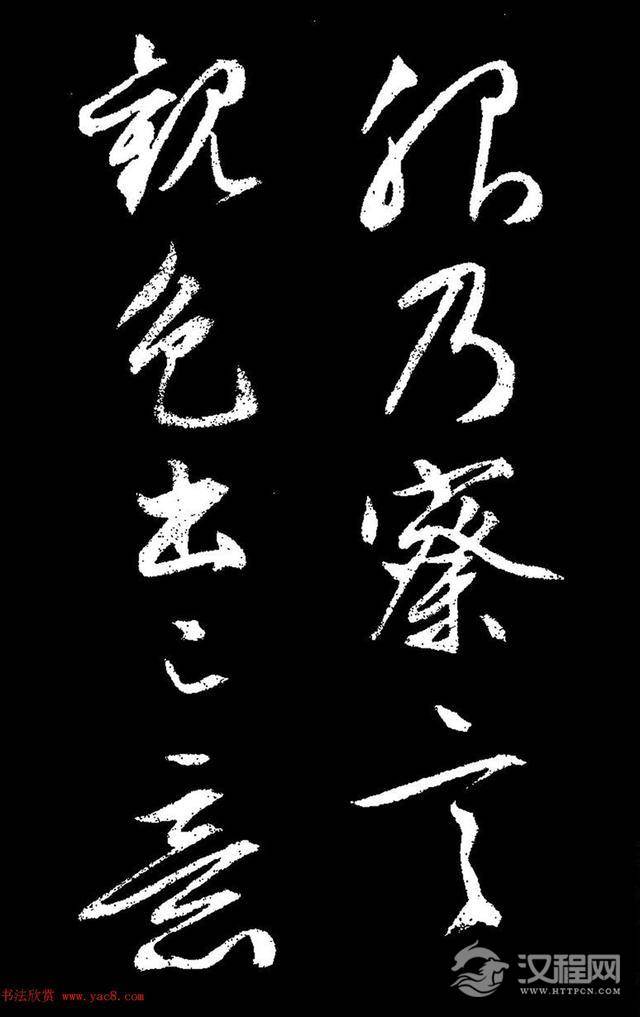 乃察言
觀色出之意
书法欣赏 www.yac8.com
汉程网
WWW.HTTPCN.COM